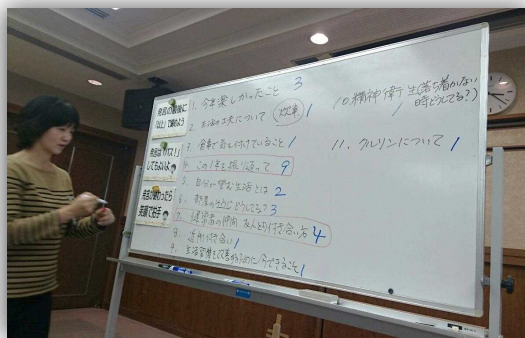 発言の最後に
「以上」で締めよう
発言は「パス！」
してもよいよ
発言が終わったら
笑顔で拍手
1. 今年楽しかったこと 3
2. 生活の工夫について (炊事) 1
3. 食事で気を付けていること 1
4. この1年を振り返って 9
5. 自分が望む生活とは 2
6. 部屋のそうじどうしてる? 3
7. 通常者の仲間、友人との付き合い方 4
8. 近所付き合い 1
9. 生活習慣を改善するために今できること 1
10. 精神衛生(落ち着かない
時どうしてる?) 1
11. クルリンについて 1